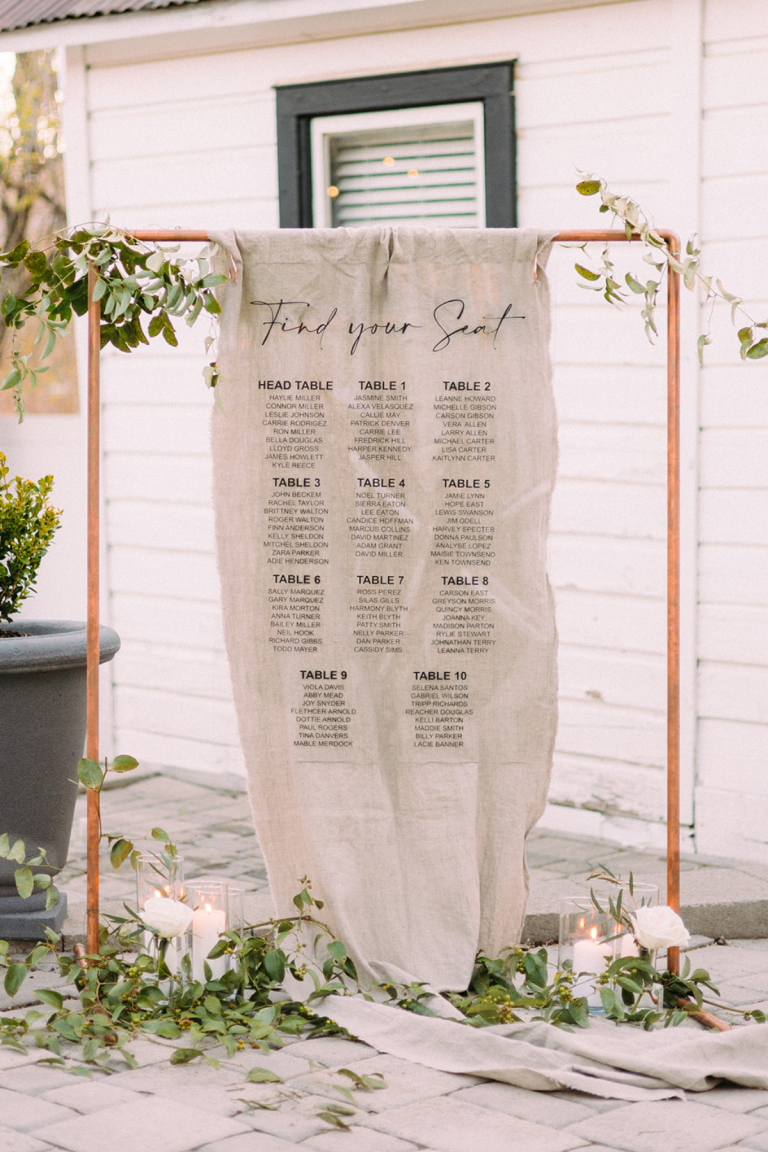 Find your Seat
HEAD TABLE
HAYLIE MILLER
CONNOR MILLER
LESLIE JOHNSON
CARRIE RODRIGEZ
RON MILLER
BELLA DOUGLAS
LLOYD GROSS
JAMES HOWLETT
KYLE REECE
TABLE 1
JASMINE SMITH
ALEXA VELASQUEZ
CALLIE MAY
PATRICK DENVER
CARRIE LEE
FREDRICK HILL
HARPER KENNEDY
JASPER HILL
TABLE 2
LEANNE HOWARD
MICHELLE GIBSON
CARSON GIBSON
VERA ALLEN
LARRY ALLEN
MICHAEL CARTER
LISA CARTER
KAITLYNN CARTER
TABLE 3
JOHN BECKEM
RACHEL TAYLOR
BRITTNEY WALTON
ROGER WALTON
FINN ANDERSON
KELLY SHELDON
MITCHEL SHELDON
ZARA PARKER
ADIE HENDERSON
TABLE 4
NOEL TURNER
SIERRA EATON
LEE EATON
CANDICE HOFFMAN
MARCUS COLLINS
DAVID MARTINEZ
ADAM GRANT
DAVID MILLER
TABLE 5
JAMIE LYNN
HOPE EAST
LEWIS SWANSON
JIM ODELL
HARVEY SPECTER
DONNA PAULSON
ANALYSE LOPEZ
MAISIE TOWNSEND
KEN TOWNSEND
TABLE 6
SALLY MARQUEZ
GARY MARQUEZ
KIRA MORTON
ANNA TURNER
BAILEY MILLER
NEIL HOOK
RICHARD GIBBS
TODD MAYER
TABLE 7
ROSS PEREZ
SILAS GILLS
HARMONY BLYTH
KEITH BLYTH
PATTY SMITH
NELLY PARKER
DAN PARKER
CASSIDY SIMS
TABLE 8
CARSON EAST
GREYSON MORRIS
QUINCY MORRIS
JOANNA KEY
MADISON PARTON
RYLIE STEWART
JOHNATHAN TERRY
LEANNA TERRY
TABLE 9
VIOLA DAVIS
ABBY MEAD
JOY SNYDER
FLETHCER ARNOLD
DOTTIE ARNOLD
PAUL ROGERS
TINA DANVERS
MABLE MERDOCK
TABLE 10
SELENA SANTOS
GABRIEL WILSON
TRIPP RICHARDS
REACHER DOUGLAS
KELLI BARTON
MADDIE SMITH
BILLY PARKER
LACIE BANNER